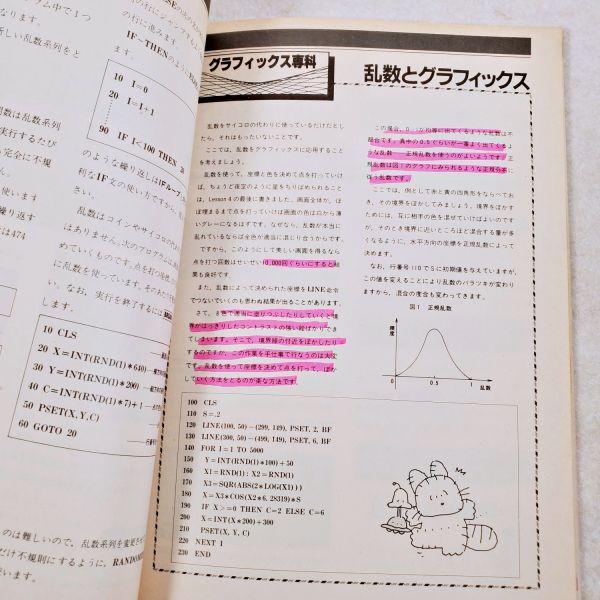 ラム中で1つ
なります。
新しい乱数系列をと
数は乱数系列
実行するたび
も完全に不規
います
繰り返す
は474
の行にジャンプする
の行に進みます。
IF~THENのように
ます。
10 I=0
20 I=I+1
90 IF I<100 THEN 20
のような繰り返しはIFループ
利なIF文の使い方ですから、
さい。
乱数はコインやサイコロの
はありません。次のプログラムは
めていくものです。点の打つ座標
に乱数を使っています。そのあたりを
い。なお、実行を終了するには
します。
10 CLS
20 X=INT(RND(1)*640)
30 Y=INT(RND(1)*200)
40 C=INT(RND(1)*7)+1
50 PSET(X,Y,C)
60 GOTO 20
のは難しいので、乱数系列を変更
だけ不規則にするように、RANDOM
います。
グラフィックス専科
乱数とグラフィックス
乱数をサイコロの代わりに使っているだけだとし
たら、それはもったいないことです。
ここでは、乱数をグラフィックスに応用すること
を考えましょう。
乱数を使って、座標と色を決めて点を打っていけ
ば、ちょうど夜空のように星をちりばめられること
は、Lesson 4の最後に書きました。画面全体が、ほ
ぼ埋まるまで点を打っていけば画面の色は白から薄
いグレーになるはずです。なぜなら、乱数が本当に
乱れているならば全色が適当に混じり合うからです。
ですから、このようにして美しい画面を得るなら
点を打つ回数はせいぜい10,000回くらいにすると結
果も良好です。
また、乱数によって決められた座標をLINE命令
でつないでいくのも思わぬ結果が出ることがあります。
さて、8色で適当に塗りつぶしたりしていくと境
界がはっきりしたコントラストの強い絵ばかりでき
てしまいます。そこで、境界線の付近をぼかしたり
するのですが、この作業を手仕事で行なうのは大変
です。乱数を使って座標を決めて点を打って、ぼか
していく方法をとるのが楽な方法です。
この場合、0~1が均等に出てくるような乱数は不
都合です。真中の0.5ぐらいが一番よく出てくるよ
うな乱数――正規乱数を使うのがよいようです。正
規乱数は図1のグラフにみられるような正規分布に
従う乱数です。
ここでは、例として赤と黄の四角形をならべてお
き、その境界をぼかしてみましょう。境界をぼかす
ためには、互に相車の色を混ぜていけばよいのです
が、そのとき境界に近いところほど混合する量が多
くなるように、水平方向の座標を正規乱数によって
決めます。
なお、行番号110でSに初期値を与えていますが、
この値を変えることにより乱数のバラツキが変わり
ますから、混合の度合も変わってきます。
図1 正規乱数
頻度
0
0.5
1
乱数
100 CLS
110 S=.2
120 LINE(100, 50)-(299, 149), PSET, 2, BF
130 LINE(300, 50)-(499, 149), PSET, 6, BF
140 FOR I=1 TO 5000
150 Y=INT(RND(1)*100)+50
160 X1=RND(1) : X2=RND(1)
170 X3=SQR(ABS(2*LOG(X1)))
180 X=X3*COS(X2*6. 28319)*S
190 IF X>=0 THEN C=2 ELSE C=6
200 X=INT(X*200)+300
210 PSET(X, Y, C)
220 NEXT I
230 END